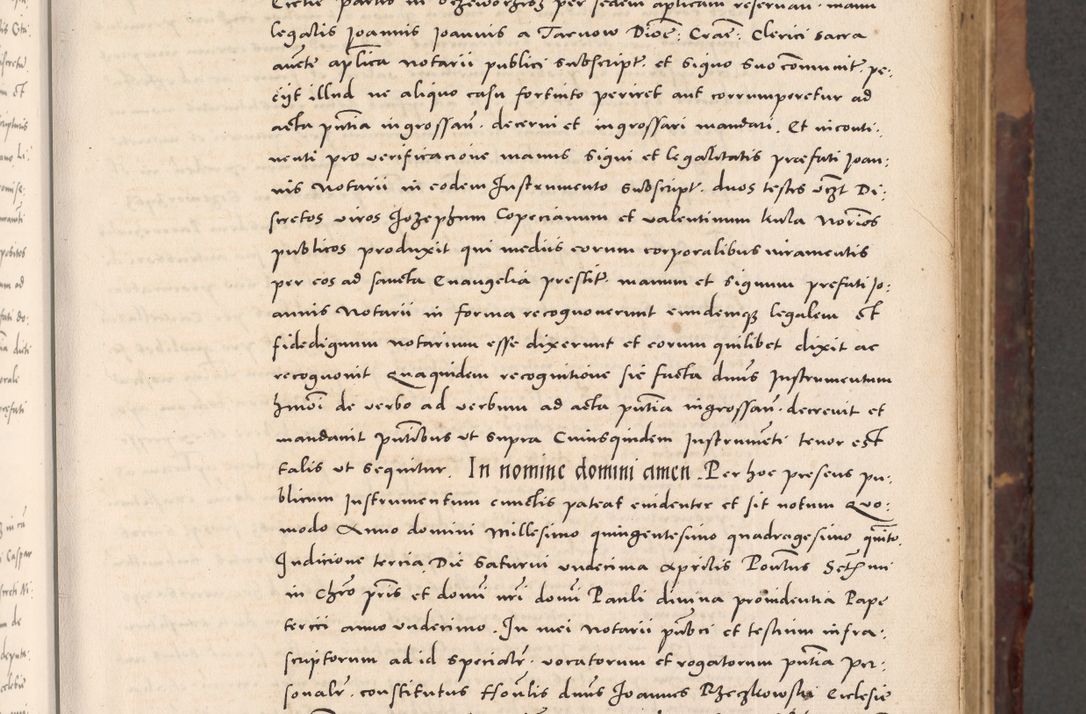 legalis Joannis Joannis a Tarnow Dioē: Craē: Clerici sacra
aūcte aplica notarii publici subscript. et signo suo cōmunit. pe:
tiit illud ne aliquo casu fortuito periret aut corrumperetur ad
acta pntia ingrossari. decerni et ingrossari mandari. Et inconti:
nenti pro verificacione manus signi et legalitatis præfati Joan:
nis Notarii in eodem Instrumento subscript. duos testes vczt Di:
scretos viros Jozephum Copecianum et valentinum kula Norios
publicos produxit qui mediis eorum corporalibus iuramentis
per eos ad sancta Euangelia prestit. manum et signum prefati Jo:
annis Notarii in forma recognouerunt eundemqz legalem et
fidedignum notarium esse dixerunt et eorum quilibet dixit ac
recognouit Quaquidem recognitione sic facta dnus Instrumentum
hmoi de verbo ad verbum ad acta pntia ingrossari. decreuit et
mandauit pntibus vt supra Cuiusquidem Instrumēti tenor est
talis vt sequitur. In nomine domini amen. Per hoc presens pu:
blicum Instrumentum cunctis pateat euidenter et sit notum Quo:
modo Anno domini Millesimo quingentesimo quadragesimo quīto.
Indicione tercia Die Saturni vndecima Aprilis Pontus Sctmi
in Chro pris et domi nri domi Pauli diuina prouidentia Pape
tercii anno vndecimo. In mei Notarii publici et testium infra:
scriptorum ad id specialr. vocatorum et rogatorum pntia Per:
sonalr. constitutus Honlis dnus Joannes Rzeczkowski Ecclesie